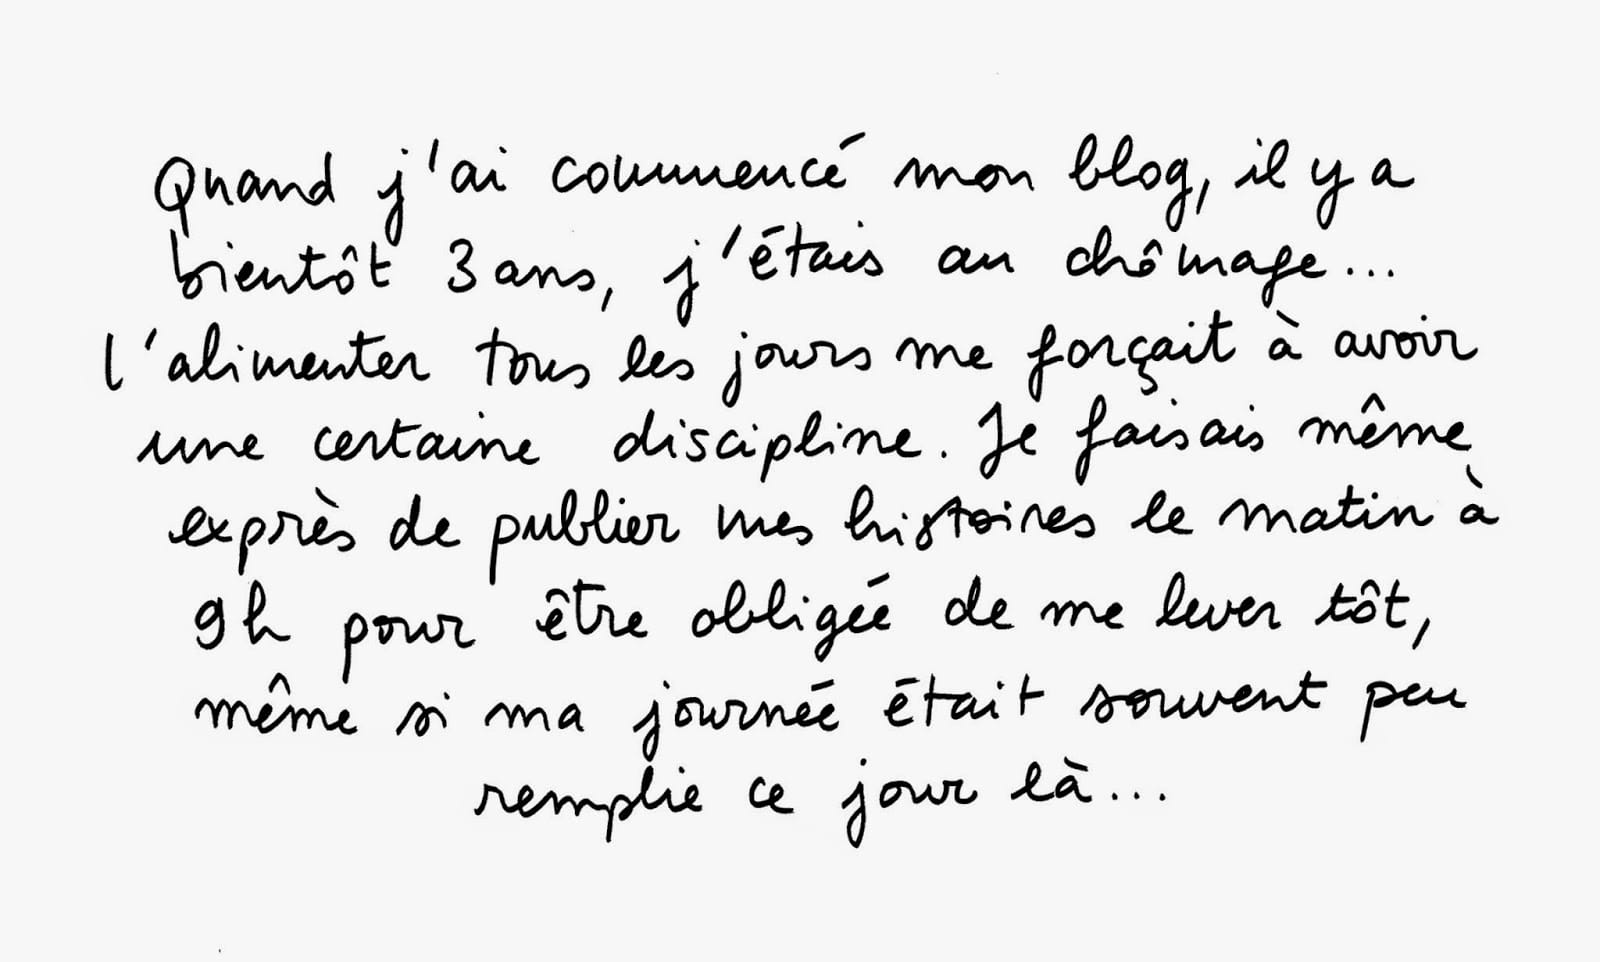 Quand j'ai commencé mon blog, il y a
bientôt 3 ans, j'étais au chômage...
l'alimenter tous les jours me forçait à avoir
une certaine discipline. Je faisais même
exprès de publier mes histoires le matin à
9h pour être obligée de me lever tôt,
même si ma journée était souvent peu
remplie ce jour là...